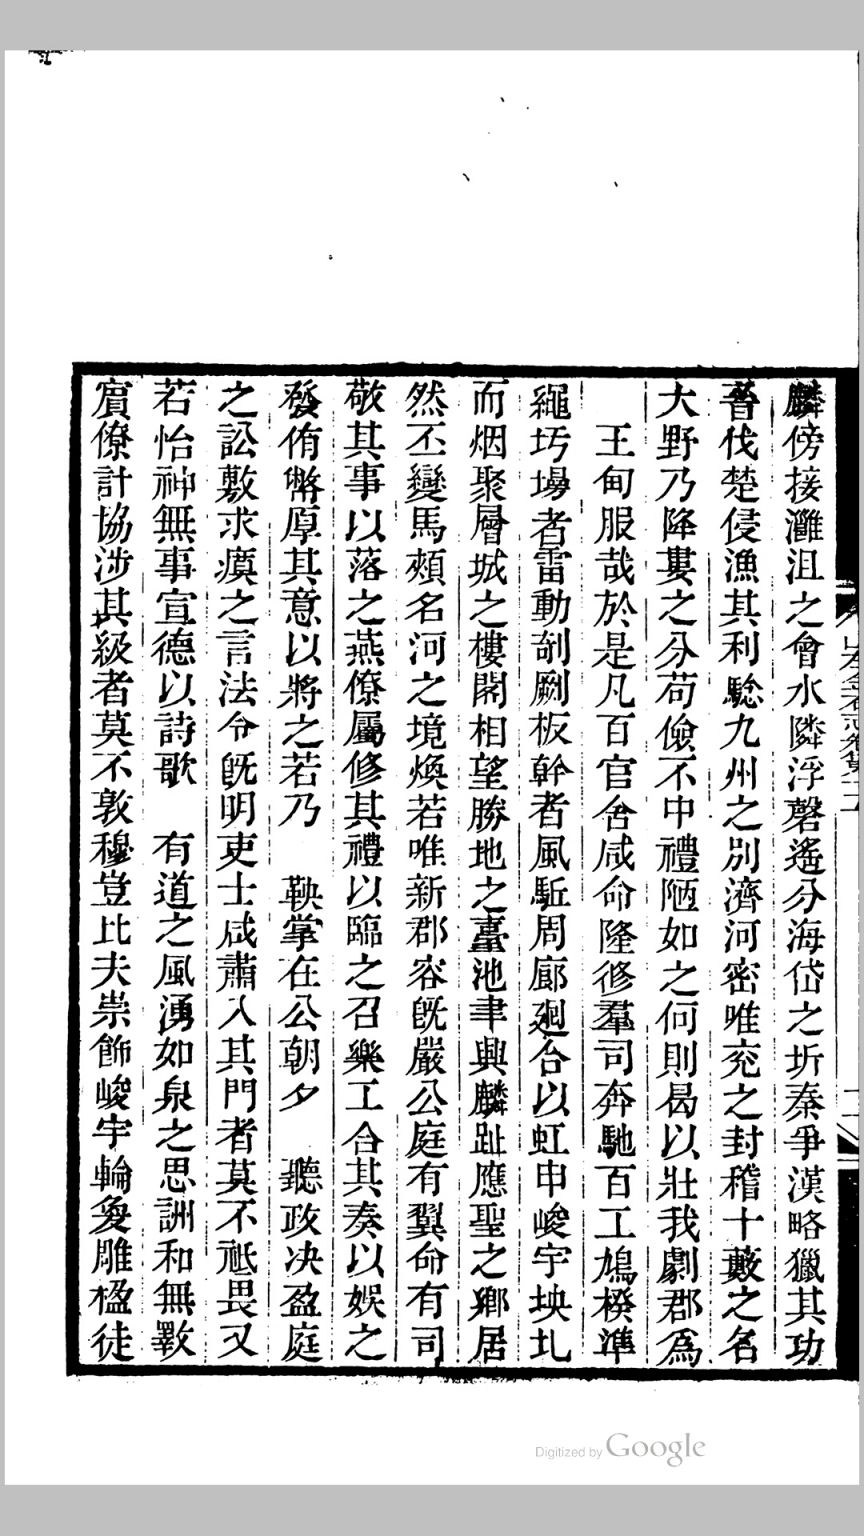 麟傍接灉沮之會水隣浮磬遙分海岱之圻秦爭漢略獵其功
晉伐楚侵漁其利騐九州之別濟河密唯兖之封稽十藪之名
大野乃降婁之分苟儉不中禮陋如之何則曷以壯我劇郡爲
王甸服哉於是凡百官舍咸命隆修羣司奔馳百工鳩揆準
繩圬墁者雷動剞劂板幹者風駈周廊廻合以虹申峻宇坱圠
而烟聚層城之樓閣相望勝地之臺池聿興麟趾應聖之鄉居
然丕變馬頰名河之境煥若唯新郡容旣嚴公庭有翼命有司
敬其事以落之燕僚屬修其禮以臨之召樂工合其奏以娛之
發侑幣厚其意以將之若乃　鞅掌在公朝夕　聽政决盈庭
之訟敷求瘼之言法令旣明吏士咸肅入其門者莫不祗畏又
若怡神無事宣德以詩歌　有道之風湧如泉之思詶和無斁
賔僚計協涉其級者莫不敦穆豈比夫崇飾峻宇輪奐雕楹徒
Digitized by Google